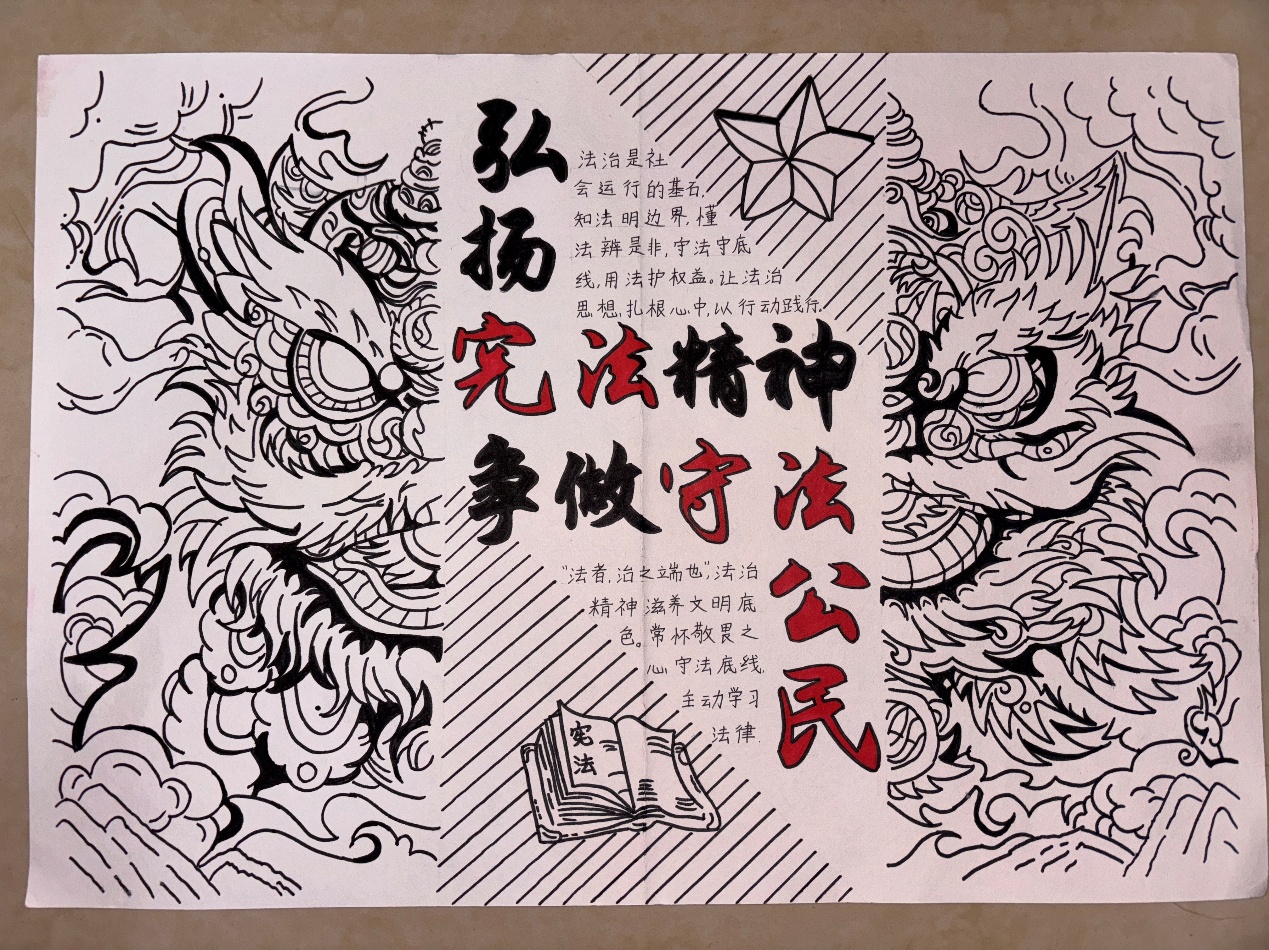 弘扬
宪法精神
争做守法
公民
法治是社
会运行的基石,
知法明边界,懂
法辨是非,守法守底
线,用法护权益。让法治
思想,扎根心中,以行动践行.
"法者,治之端也",法治
精神滋养文明底
色。常怀敬畏之
心,守法底线,
主动学习
法律.
宪法